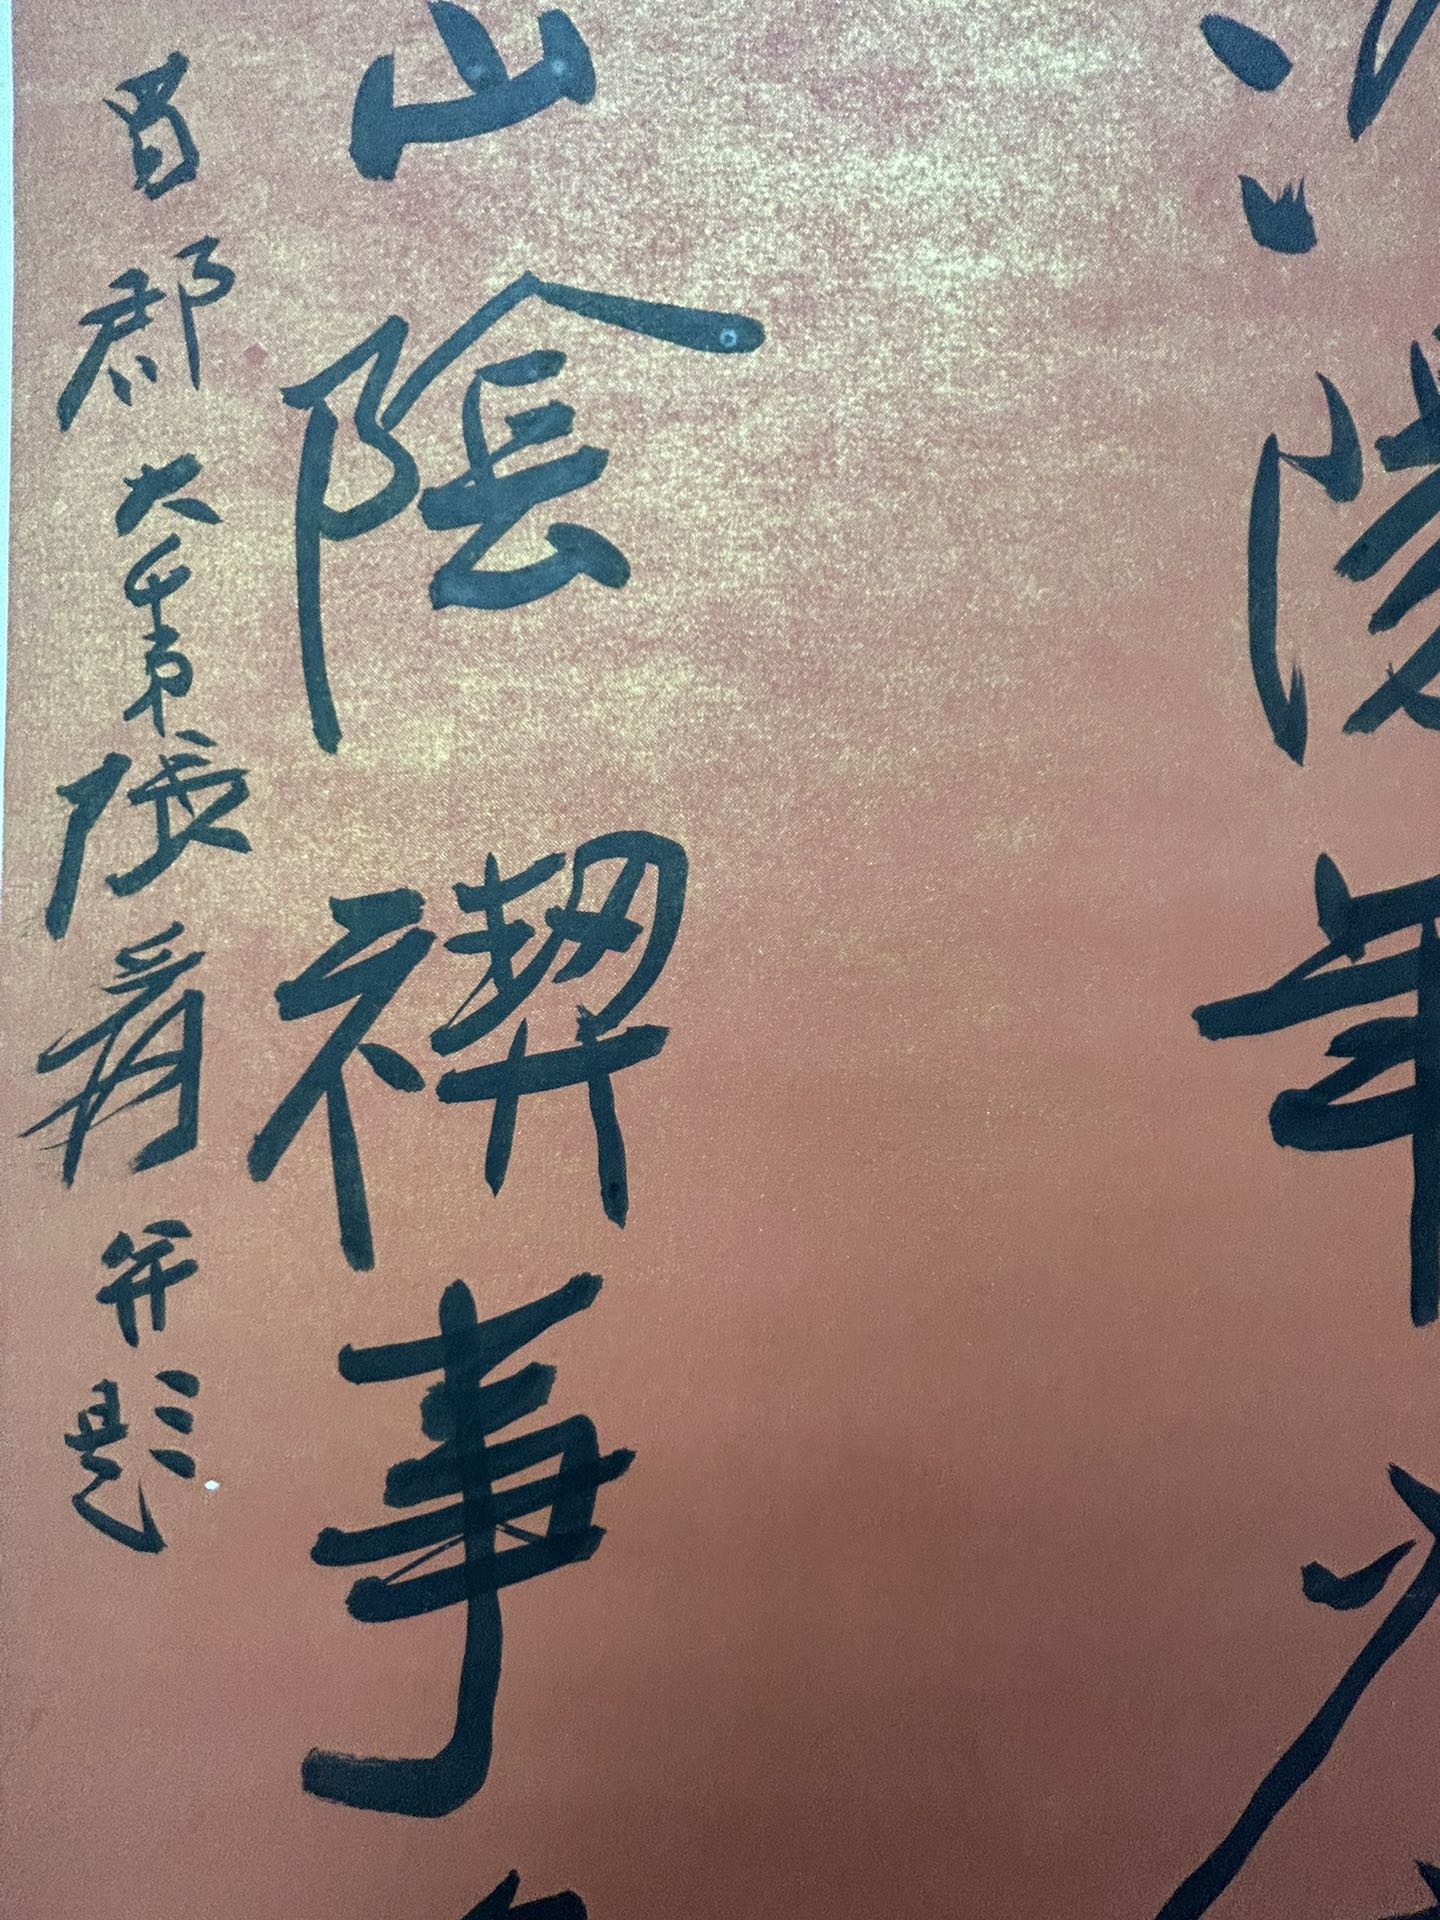 年少
山陰禊事
蜀郡大千弟張爰并題